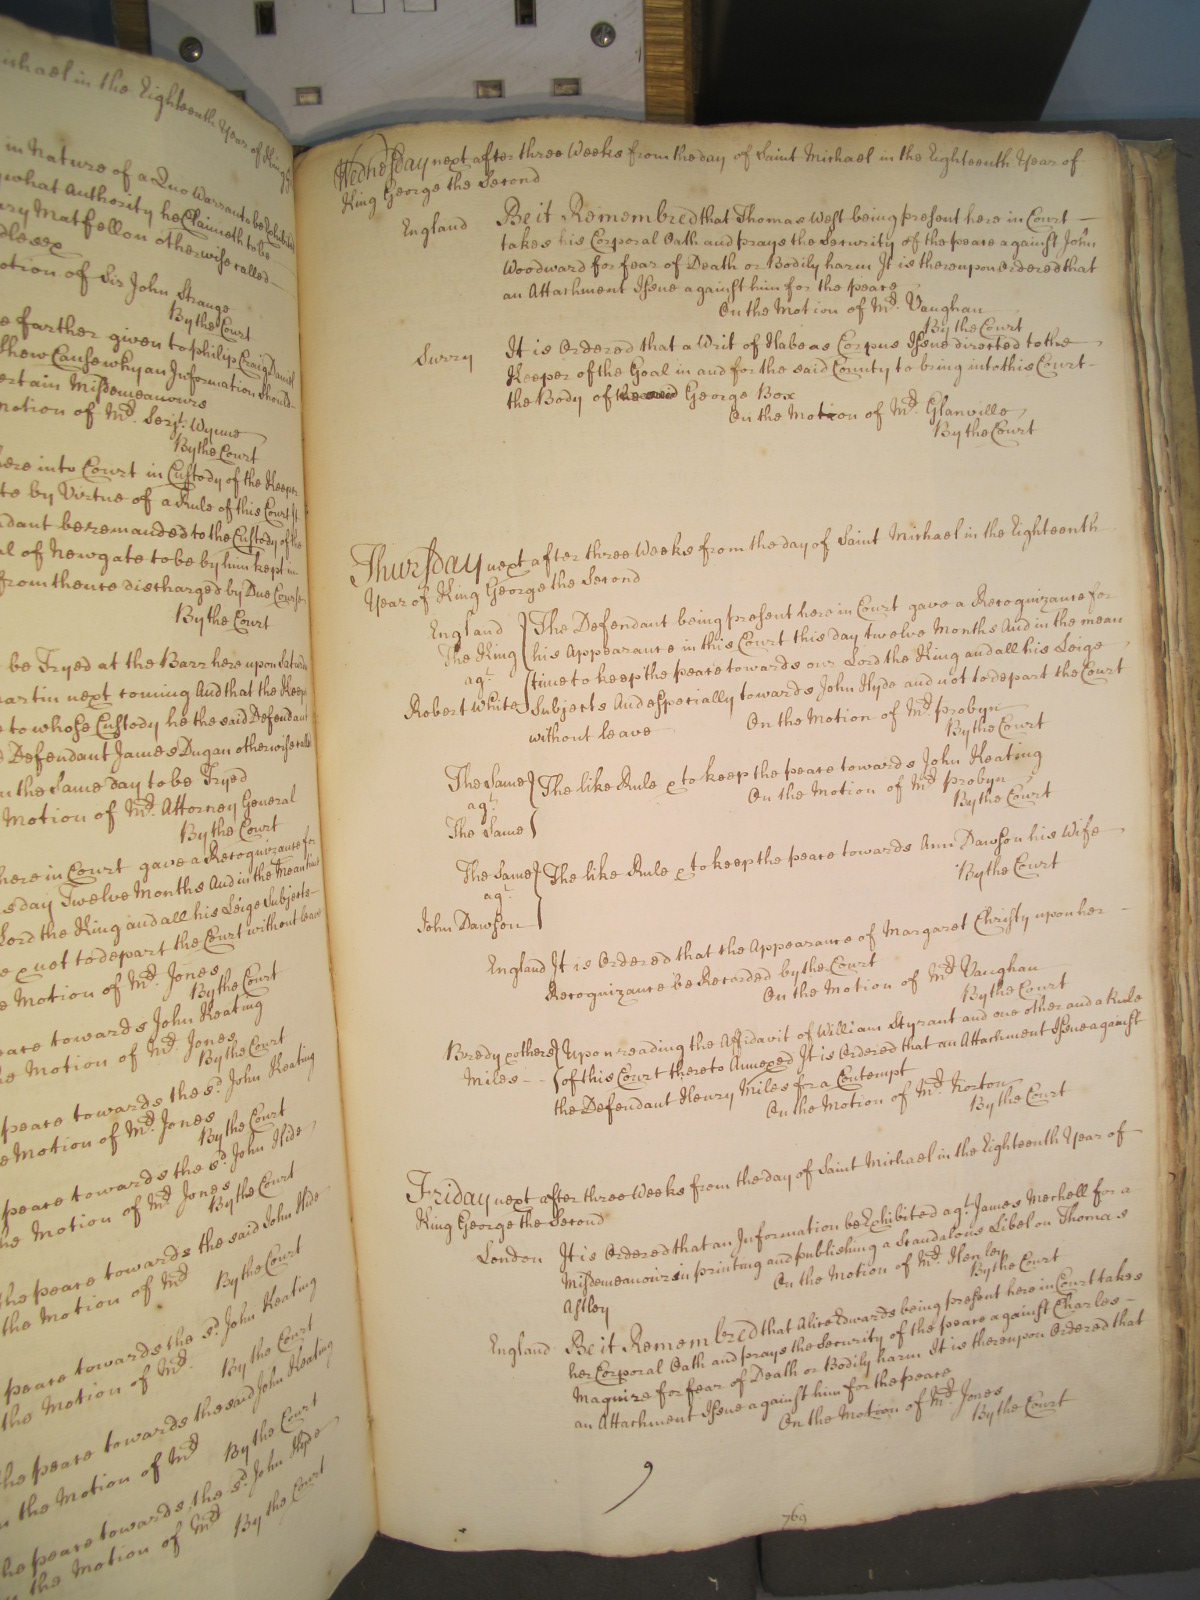 ichael in the Eighteenth Year of King
in Nature of a Quo Warranto be Exhibited
what Authority he Claimeth to be
ary Matfellon otherwise called
dlesex
otion of Sir John Strange
By the Court
e farther given to Philip Craig Daniel
Shew Cause why an Information should
ertain Misdemeanours
motion of Mr. Serjt. Wynne
By the Court
here into Court in Custody of the Keeper
te by Virtue of a Rule of this Court It
ndant be remanded to the Custody of the
al of Newgate to be by him kept in
from thence discharged by Due Course
By the Court
be Tryed at the Barr here upon Saturda
artin next coming And that the Keep
e to whose Custody he the said Defendant
Defendant James Dugan otherwise call
n the Same day to be Tryed
Motion of Mr. Attorney General
By the Court
here in Court gave a Recognizance for
s day Twelve Months And in the Mean time
Lord the King and all his Leige Subjects
e & not to depart the Court without leave
e Motion of Mr. Jones
By the Court
eace towards John Keating
he Motion of Mr. Jones
By the Court
peace towards the sd. John Keating
e Motion of Mr. Jones
By the Court
peace towards the sd. John Hide
he Motion of Mr. Jones
By the Court
the peace towards the said John Hide
the Motion of Mr
By the Court
peace towards the sd. John Keating
the Motion of Mr.
By the Court
the peace towards the said John Keating
n the Motion of Mr
By the Court
he peace towards the sd. John Hyde
the Motion of Mr
By the Court
Wednesday next after three Weeks from the day of Saint Michael in the Eighteenth Year of
King George the Second
England Be it Remembred that Thomas West being present here in Court
takes his Corporal Oath and prays the Security of the peace against John
Woodward for fear of Death or Bodily harm It is thereupon Ordered that
an Attachment Issue against him for the peace
On the Motion of Mr. Vaughan
By the Court
Surry It is Ordered that a Writ of Habeas Corpus Issue directed to the
Keeper of the Goal in and for the said County to bring into this Court
the Body of the said George Box
On the Motion of Mr. Glanville
By the Court
Thursday next after three Weeks from the day of Saint Michael in the Eighteenth
Year of King George the Second
England The Defendant being present here in Court gave a Recognizance for
The King his Appearance in this Court this day twelve Months And in the mean
agt. time to keep the peace towards our Lord the King and all his Leige
Robert White Subjects And especially towards John Hyde and not to depart the Court
without leave On the Motion of Mr. Probyn
By the Court
The Same The like Rule & to keep the peace towards John Keating
agt. On the Motion of Mr Probyn
The Same By the Court
The Same The like Rule & to keep the peace towards Ann Dawson his Wife
agt. By the Court
John Dawson
England It is Ordered that the Appearance of Margaret Christy upon her
Recognizance be Recorded by the Court
On the Motion of Mr Vaughan
By the Court
Bredy & others Upon reading the Affidavit of William Styrant and one other and a Rule
Miles of this Court thereto Annexed It is Ordered that an Attachment Issue against
the Defendant Henry Miles for a Contempt
On the Motion of Mr. Norton
By the Court
Friday next after three Weeks from the day of Saint Michael in the Eighteenth Year of
King George the Second
London It is Ordered that an Information be Exhibited agt. James Mechell for a
Misdemeanour in printing and publishing a Scandalous Libel on Thomas
Astley On the Motion of Mr. Henley
By the Court
England Be it Remembred that Alice Edwards being present here in Court takes
her Corporal Oath and prays the Security of the peace against Charles
Maguire for fear of Death or Bodily harm It is thereupon Ordered that
an Attachment Issue against him for the peace
On the Motion of Mr. Jones
By the Court
769